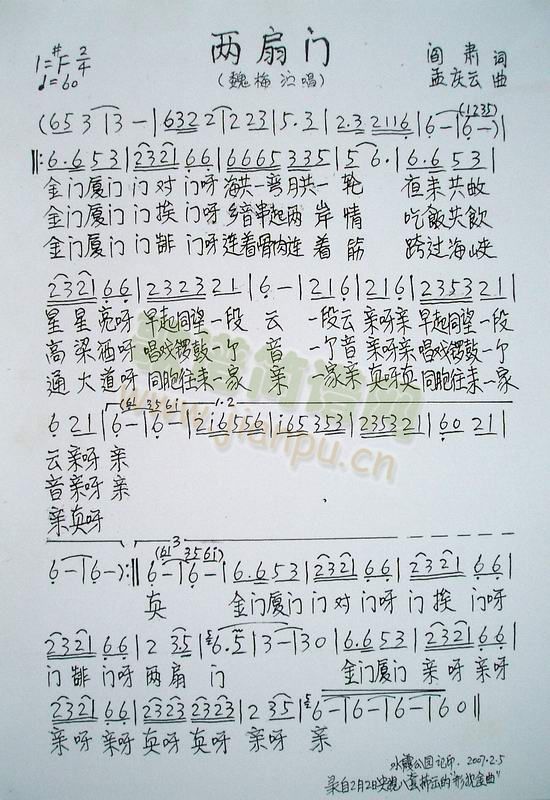 两扇门
1=#F 2/4
♩=60
(魏梅演唱)
阎肃 词
孟庆云 曲
(653|3-|6322|223|5.3|2.3 2116|6-|6-)|
(1235)
‖:6.653|2321 66|6665 335|5 6.|6.653|
金门厦门 门对门呀 海共一弯月共一轮 夜来共
金门厦门 门挨门呀 乡音串起两岸情 吃飯共飲
金门厦门 门靠门呀 连着骨肉连着筋 跨过海峡
2321 66|2323 21|6-|216|216|2353 21|
星星亮呀 早起同望一段云 一段云 亲呀亲 早起同望一段
高粱酒呀 唱戏锣鼓一个音 一个音 亲呀亲 唱戏锣鼓一个
通大道呀 同胞往来一家亲 一家亲 真呀真 同胞往来一家
(61 3561 1.2
6 21|6-|6-|2i6556|i65353|235321|60 21|
云亲呀亲
音亲呀亲
亲真呀
3
(61 3561)
6-|6-):‖6-|6-|6.653|2321 66|2321 66|
真 金门厦门 门对门呀 门挨门呀
2321 66|2 35|6.5|3-|30|6.653|2321 66|
门靠门呀 两扇门 金门厦门 亲呀亲呀
2321 66|2323 2323|2 35|6-|6-|6-|60‖
亲呀亲呀 真呀真呀 亲呀亲
水霞公园记印. 2007.2.5
www.jianpu.cn